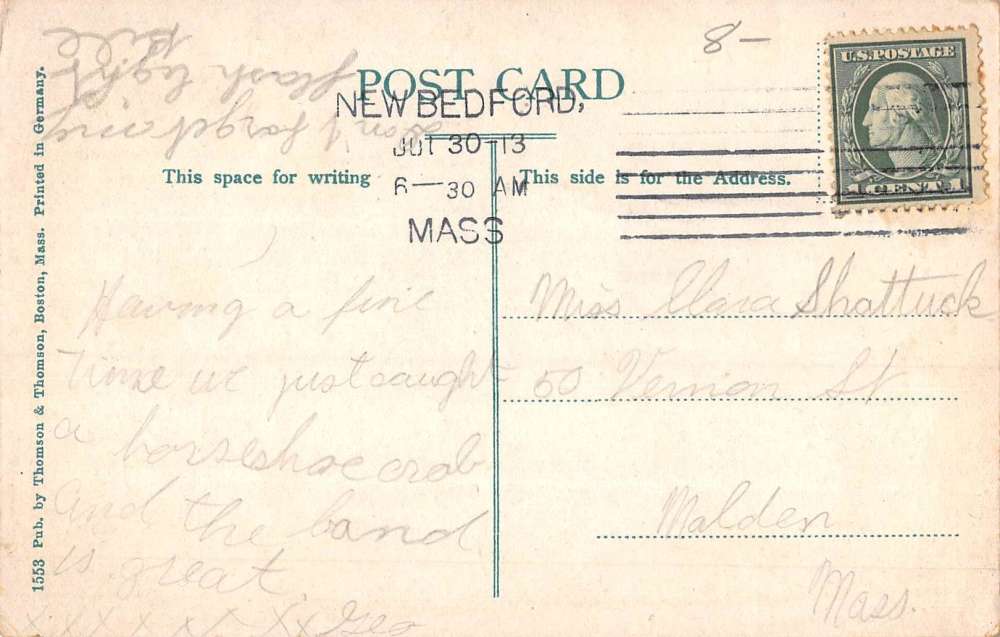 8-
U.S. POSTAGE
1 CENT 1
POST CARD
NEW BEDFORD,
JUL 30-13
6-30 AM
MASS
This space for writing
This side is for the Address.
1553 Pub. by Thomson & Thomson, Boston, Mass. Printed in Germany.
don't forget my
flash light
Having a fine
time we just caught
a horseshoe crab
and the band
is great
x x x x x x x x Geo
Miss Clara Shattuck
50 Vernon St
Malden
Mass.